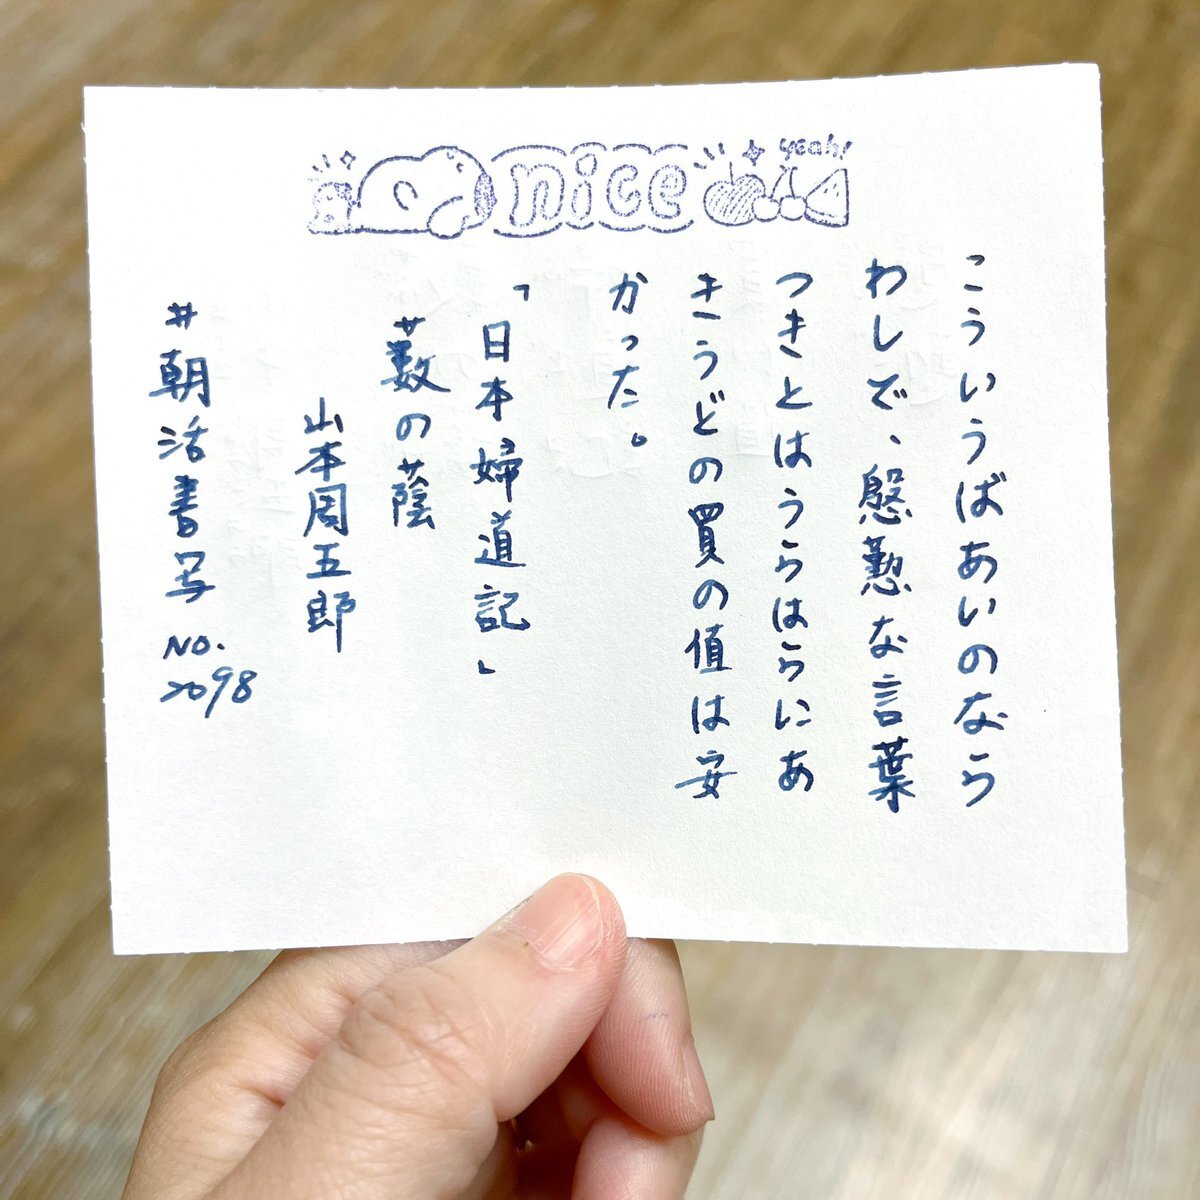 nice
yeah!
こういうばあいのなら
わしで、慇懃な言葉
つきとはうらはらにあ
きうどの買の値は安
かった。
「日本婦道記」
藪の蔭
山本周五郎
#朝活書写
NO.
2098